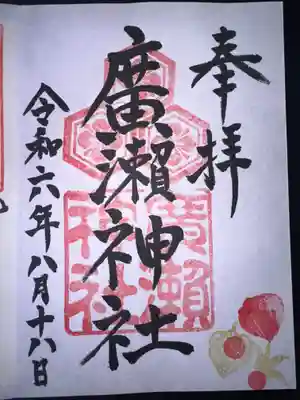 奉拝
廣瀬神社
廣瀬
神社
令和六年八月十八日